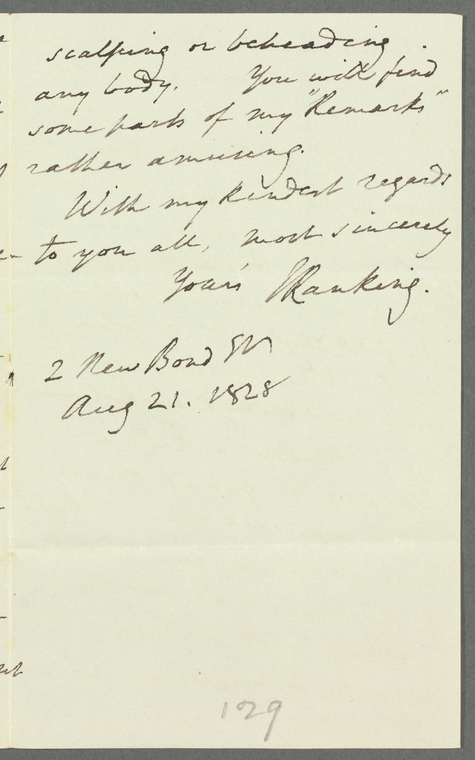 scalping or beheading
any body. You will find
some parts of my "Remarks"
rather amusing.
With my kindest regards
to you all, most sincerely
Yours JRanking.
2 New Bond St
Aug 21. 1828
129